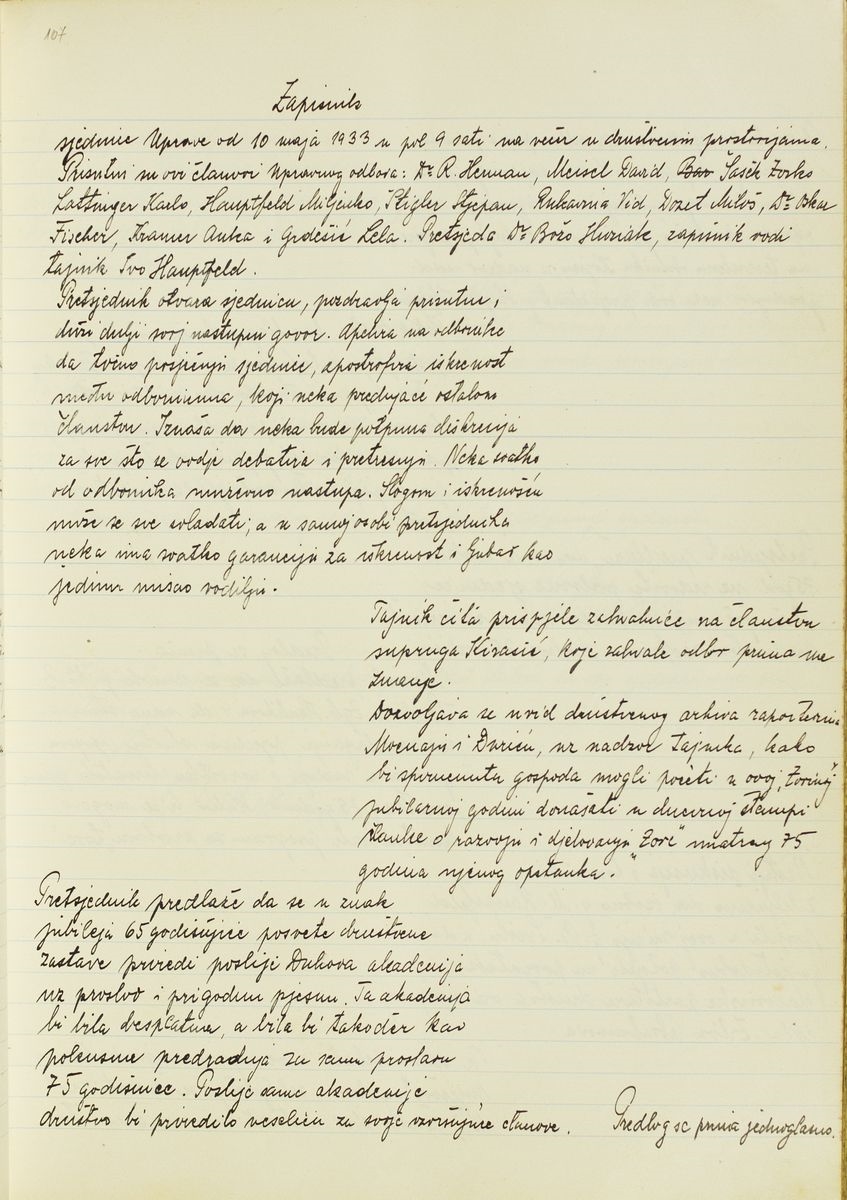 107
Zapisnik
sjednice Uprave od 10 maja 1933 u pol 9 sati na večer u društvenim prostorijama.
Prisutni su ovi članovi Upravnog odbora: Dr. R. Herman, Meisel David, Šašek Zorko
Lattinger Karlo, Hauptfeld Miljenko, Štigler Stjepan, Rukavina Vid, Dozet Miloš, Dr. Oskar
Fischer, Kramer Anka i Grdešić Lela. Pretsjeda Dr. Božo Huzjak, zapisnik vodi
tajnik Ivo Hauptfeld.
Pretsjednik otvara sjednicu, pozdravlja prisutne i
drži dulji svoj nastupni govor. Apelira na odbornike
da točno posjećuju sjednice, apostrofira iskrenost
među odbornicima, koji neka prednjače ostalom
članstvu. Iznaša da neka bude potpuna diskrecija
za sve što se ovdje debatira i pretresuje. Neka svatko
od odbornika muževno nastupa. Slogom i iskrenošću
može se sve svladati; a u samoj osobi pretsjednika
neka ima svatko garanciju za iskrenost i ljubav kao
jedinu misao vodilju.
Tajnik čita prispjele zahvalnice na članstvu
supruga Kirasić, koje zahvale odbor prima na
znanje.
Dozvoljava se uvid društvenog arhiva
i Duriću, uz nadzor tajnika, kako
bi spomenuta gospoda mogli početi u ovoj „Zorinoj“
jubilarnoj godini donašati u dnevnoj štampi
članke o razvoju i djelovanju „Zore“ unatrag 75
godina njenog opstanka.
Pretsjednik predlaže da se u znak
jubileja 65 godišnjice posvete društvene
zastave priredi poslije Duhova akademija
uz proslov i prigodnu pjesmu. Ta akademija
bi bila besplatna, a bila bi također kao
pokusna predradnja za samu proslavu
75 godišnice. Poslije same akademije
društvo bi priredilo veselicu za svoje članove. Predlog se prima jednoglasno.